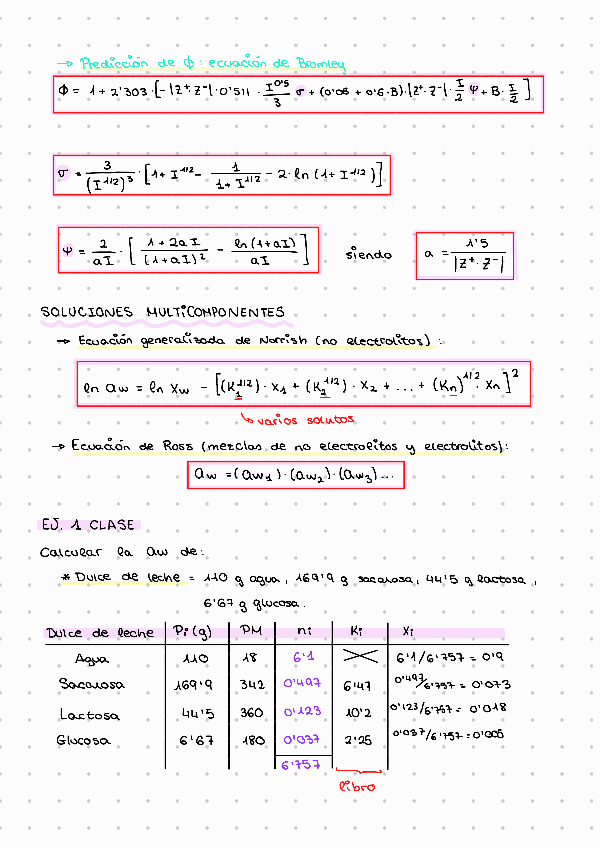 → Predicción de Φ: ecuación de Bromley
Φ = 1 + 2'303 · [-|Z⁺·Z⁻| · 0'511 · I^0'5/3 σ + (0'06 + 0'6·B)·|Z⁺·Z⁻| · I/2 Ψ + B · I/2]
σ = 3/(I^1/2)³ · [1 + I^1/2 - 1/(1 + I^1/2) - 2·ln(1 + I^1/2)]
Ψ = 2/aI · [(1 + 2aI)/(1+aI)² - ln(1+aI)/aI] siendo a = 1'5/|Z⁺·Z⁻|
SOLUCIONES MULTICOMPONENTES
→ Ecuación generalizada de Norrish (no electrolitos):
ln aw = ln Xw - [(K₁^1/2)·X₁ + (K₂^1/2)·X₂ + ... + (Kn)^1/2·Xn]²
↳ varios solutos
→ Ecuación de Ross (mezclas de no electrolitos y electrolitos):
aw = (aw₁)·(aw₂)·(aw₃)...
EJ. 1 CLASE
Calcular la aw de:
* Dulce de leche = 110 g agua, 169'9 g sacarosa, 44'5 g lactosa,
6'67 g glucosa.
Dulce de leche Pi (g) PM ni Ki Xi
Agua 110 18 6'1 6'1/6'757 = 0'9
Sacarosa 169'9 342 0'497 6'47 0'497/6'757 = 0'073
Lactosa 44'5 360 0'123 10'2 0'123/6'757 = 0'018
Glucosa 6'67 180 0'037 2'25 0'037/6'757 = 0'005
6'757
libro